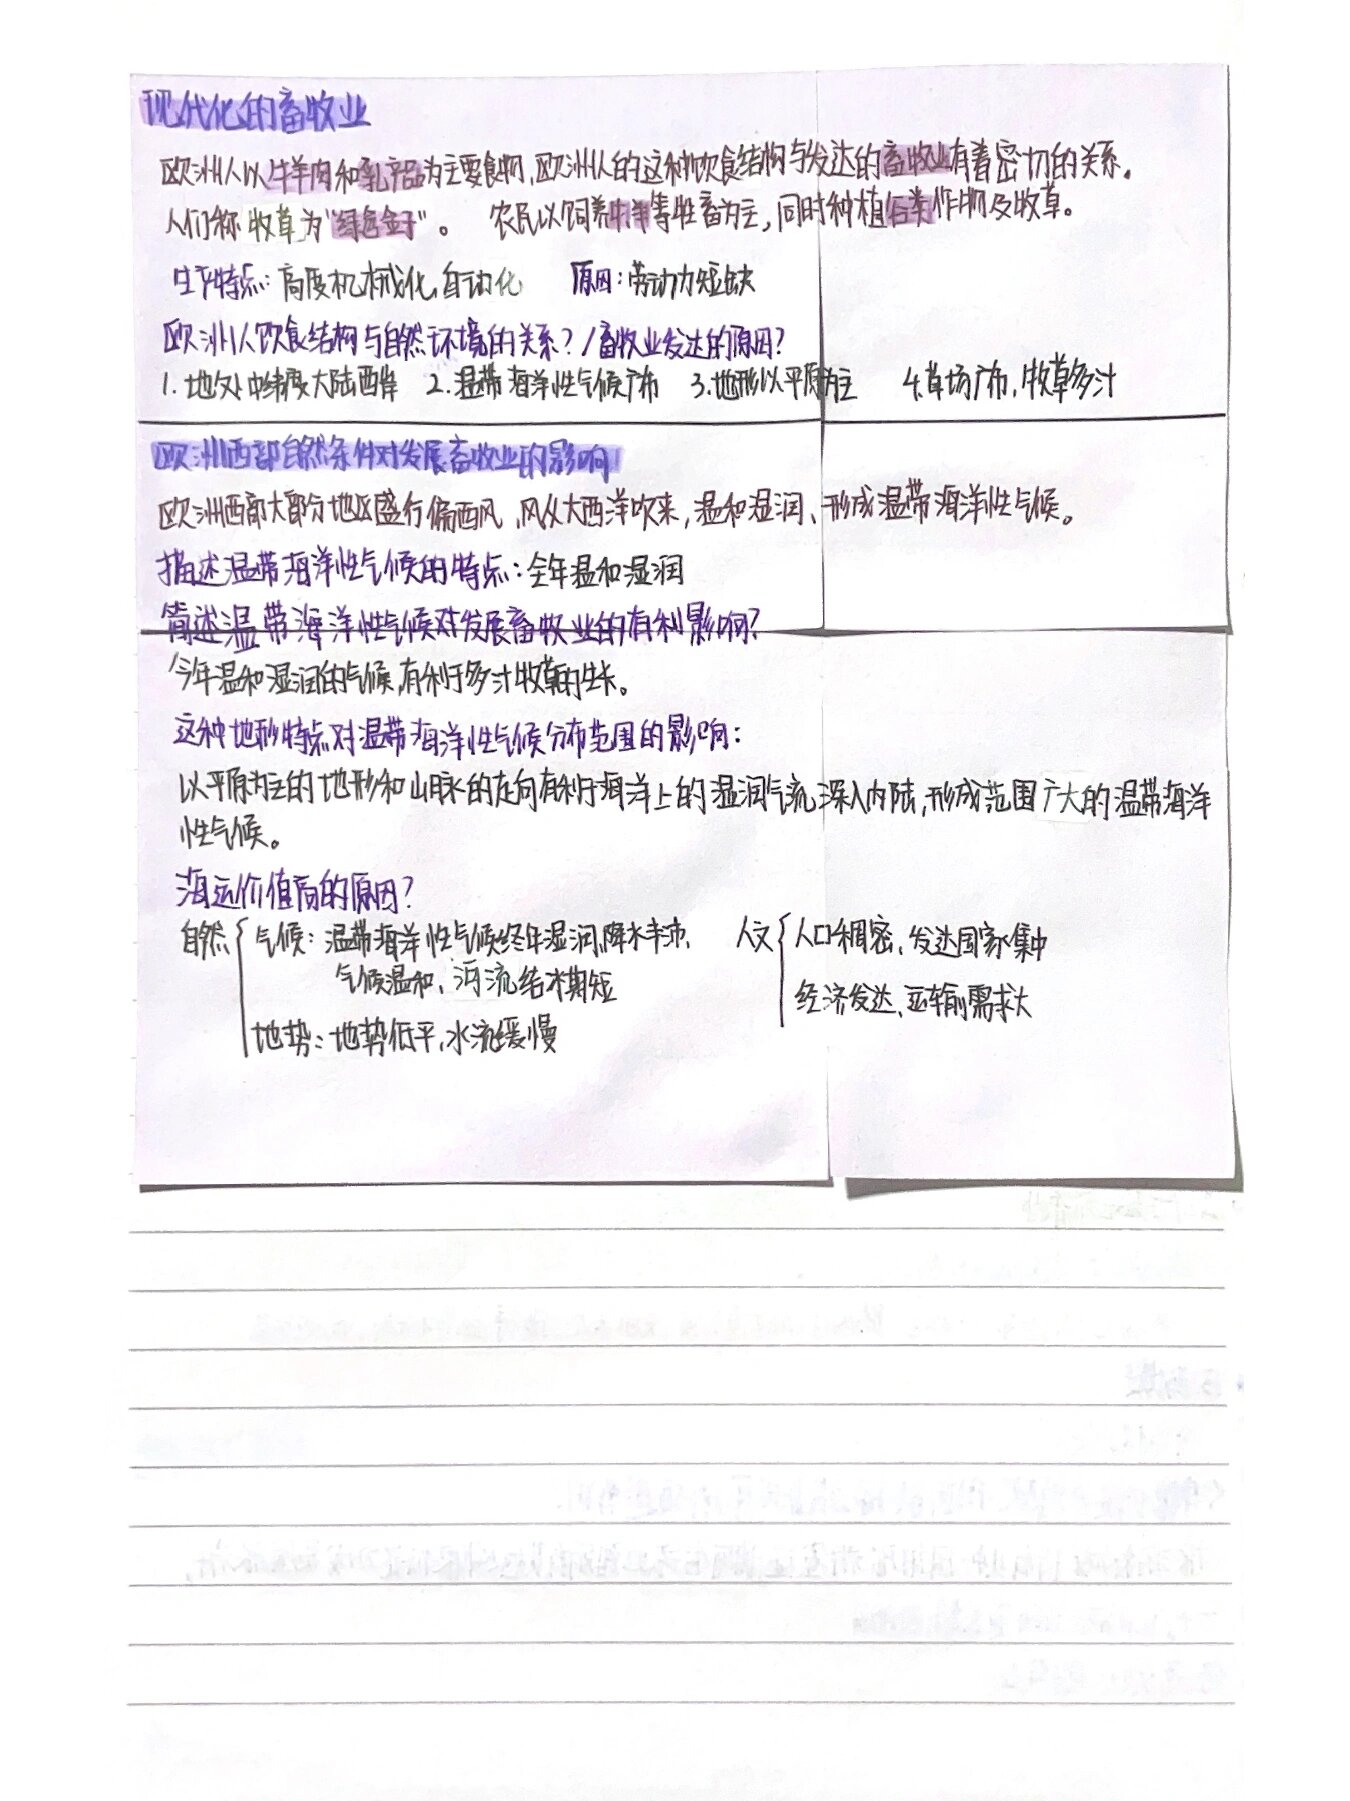 现代化的畜牧业
欧洲人以牛羊肉和乳产品为主要食物,欧洲人的这种饮食结构与发达的畜牧业有着密切的关系。
人们称牧草为“绿色金子”。 农民以饲养牛羊等牲畜为主,同时种植谷类作物及牧草。
生产特点:高度机械化,自动化 原因:劳动力短缺
欧洲人饮食结构与自然环境的关系?/畜牧业发达的原因?
1.地处中纬度大陆西岸 2.温带海洋性气候广布 3.地形以平原为主 4.草场广布,牧草多汁
欧洲西部自然条件对发展畜牧业的影响
欧洲西部大部分地区盛行偏西风,风从大西洋吹来,温和湿润、形成温带海洋性气候。
描述温带海洋性气候的特点:全年温和湿润
简述温带海洋性气候对发展畜牧业的有利影响?
今年温和湿润的气候,有利于多汁牧草的生长。
这种地形特点对温带海洋性气候分布范围的影响:
以平原为主的地形和山脉的走向有利于海洋上的湿润气流深入内陆,形成范围广大的温带海洋
性气候。
海运价值高的原因?
自然 气候:温带海洋性气候终年湿润,降水丰沛、 人文 人口稠密,发达国家集中
气候温和、河流结冰期短 经济发达,运输需求大
地势:地势低平,水流缓慢